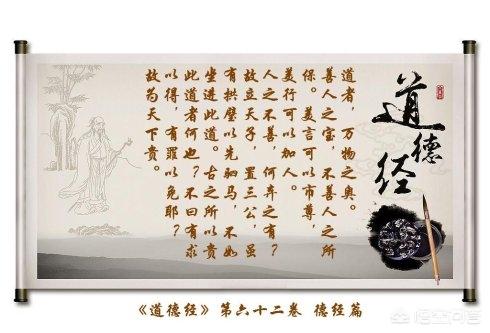 道德经
道者，万物之奥。
善人之宝，不善人之所
保。美言可以市尊，
美行可以加人。
人之不善，何弃之有？
故立天子，置三公，虽
有拱璧以先驷马，不如
坐进此道。古之所以贵
此道者何也？不曰有求
以得，有罪以免耶？
故为天下贵。
《道德经》第六十二卷 德经篇
悟空问答